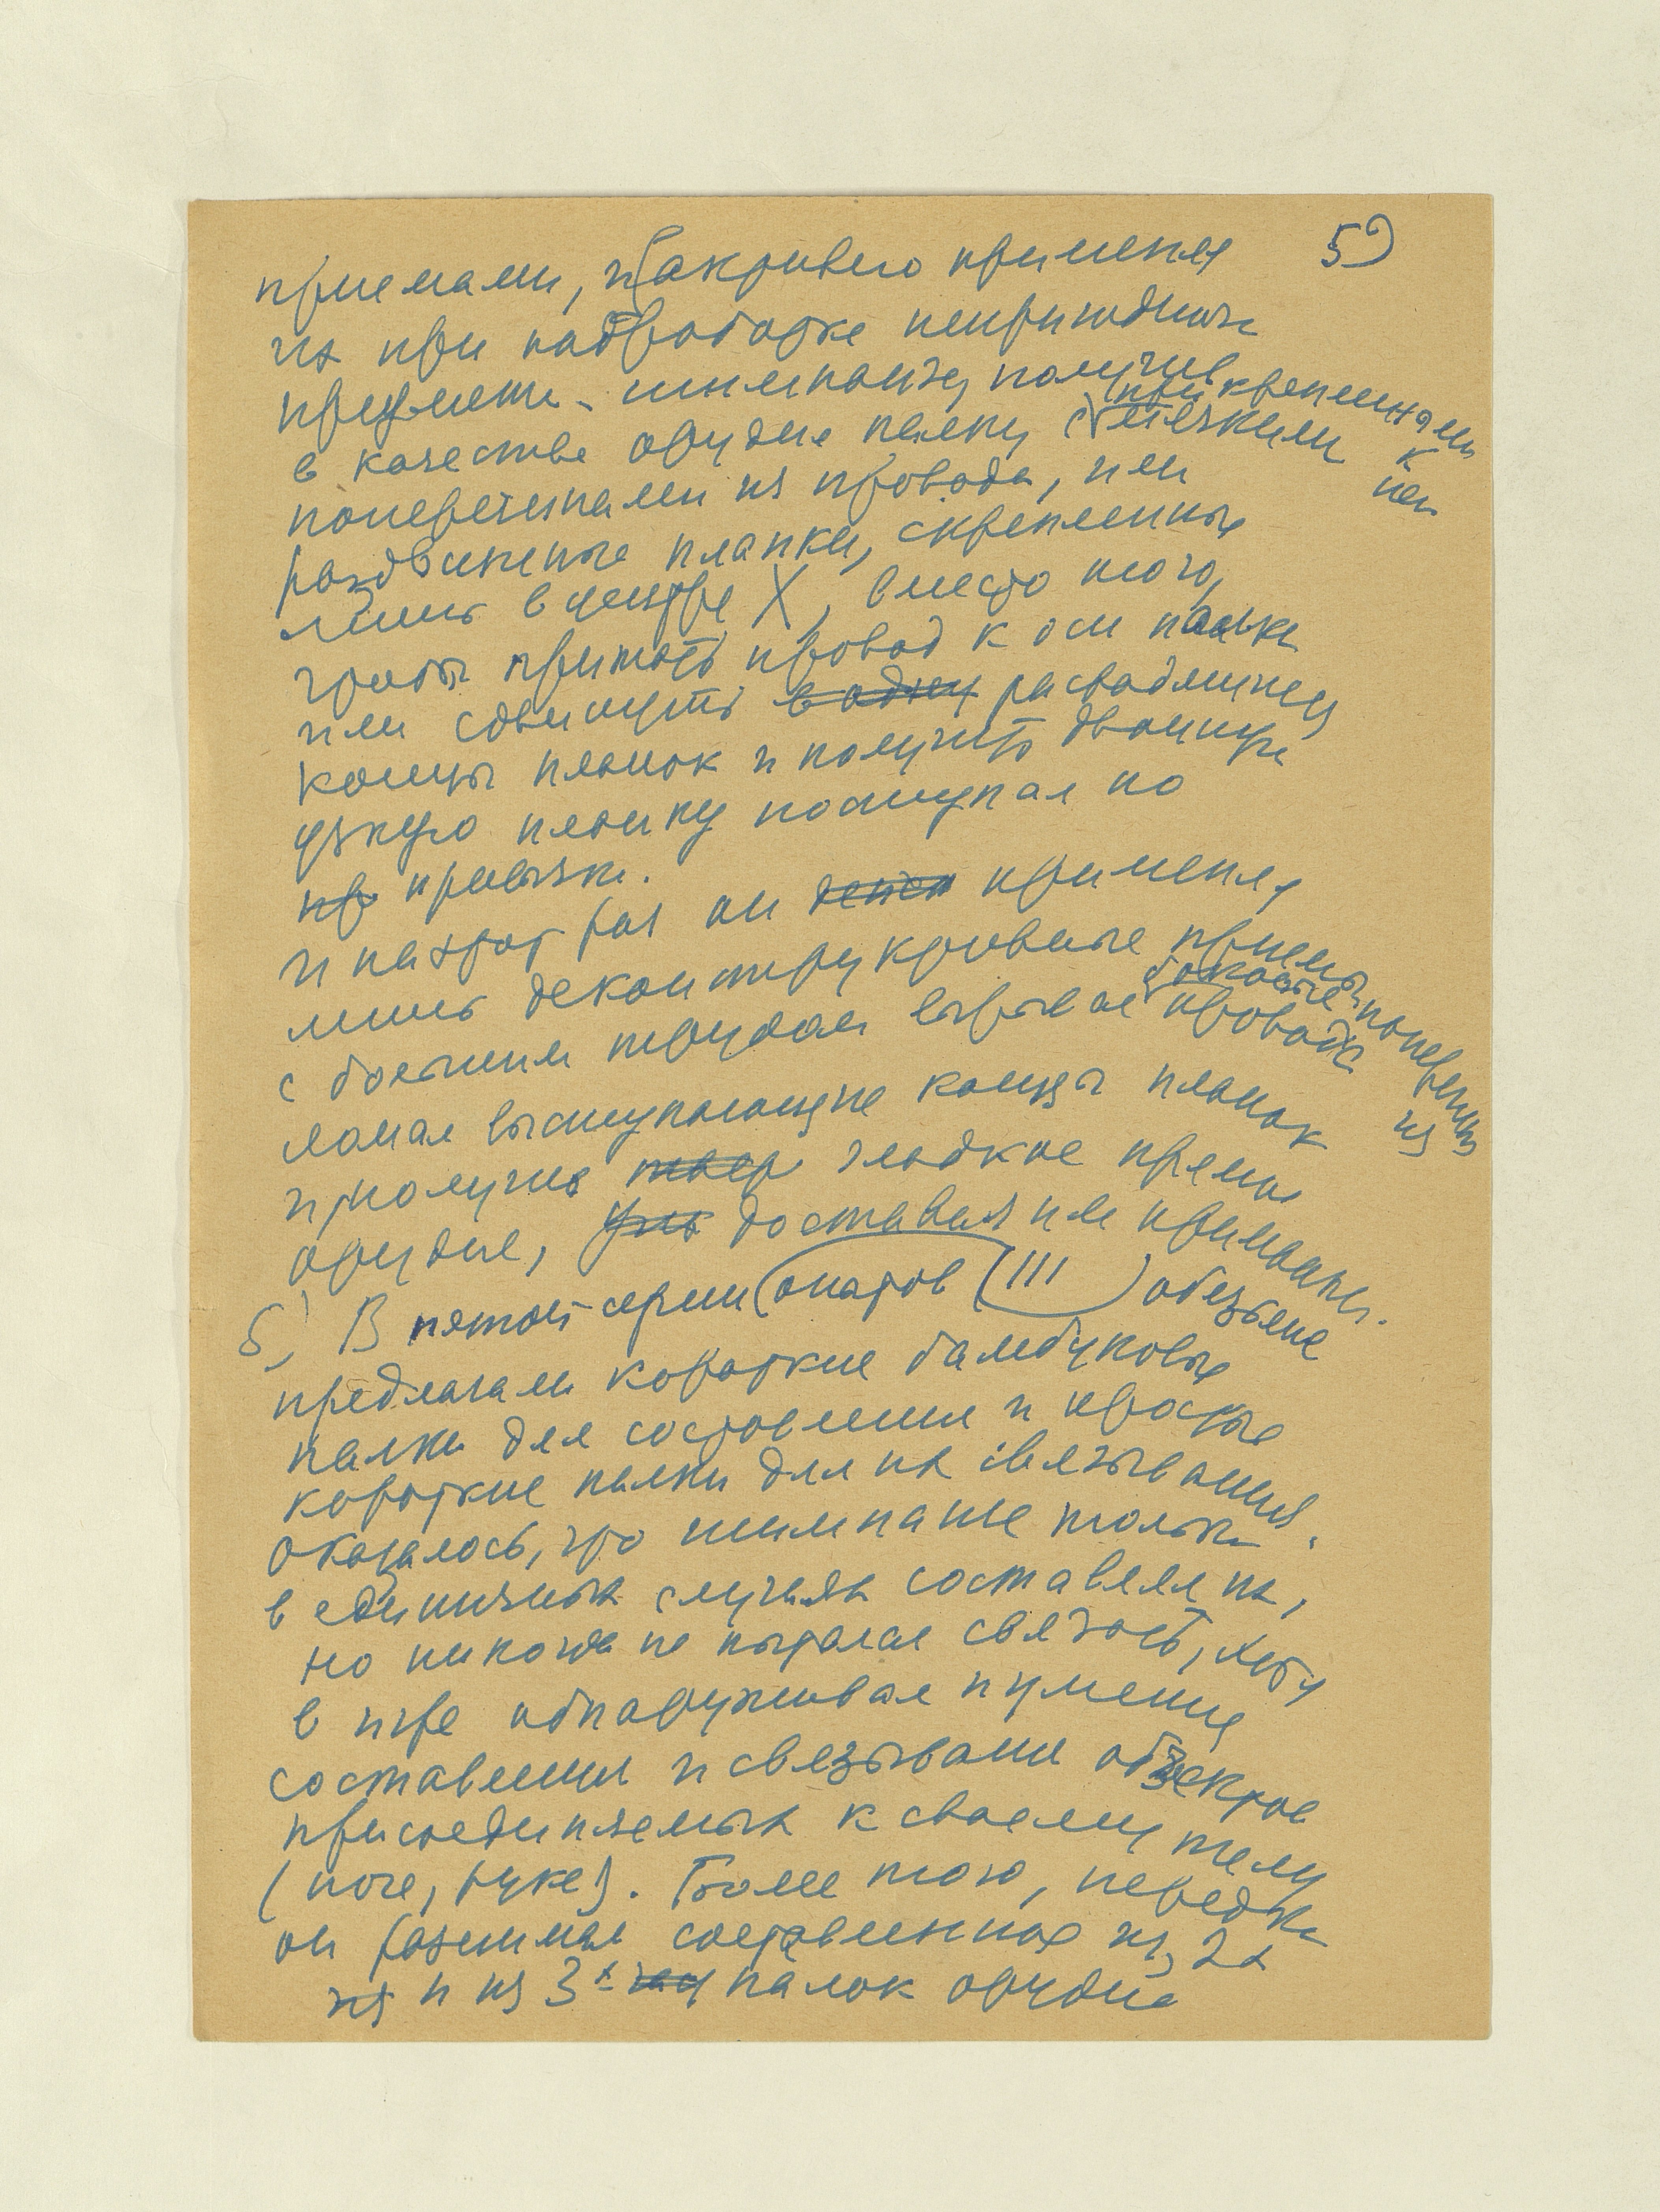 59
приемами, и активно применял
их при подработке непригодных
предметов. шимпанзе, получив
в качестве орудия палку с мягкими прикрепленными к ней
поперечинами из провода, или
раздвинутые планки, скрепленные
лишь в центре X, вместо того,
чтобы прижать провод к оси палки
или сдвинуть в одну расходящиеся
концы планок и получить двойную
узкую планку поступал по
пр привычке.
и на этот раз он применял
лишь деконструктивные приемы,
с большим трудом вырывал боковые поперечины из провода
ломал выступающие концы планок
и получив гладкое прямое
орудие, доставал им приманку.
5) В пятой серии опытов (III) обезьяне
предлагали короткие бамбуковые
палки для составления и простые
короткие палки для их связывания.
Оказалось, что шимпанзе только
в единичных случаях составлял их,
но никогда не пытался связать, хотя
в игре обнаруживал и умение
составления и связывания объектов
присоединяемых к своему телу
(ноге, руке). Более того, нередко
он разнимал составленное из 2х
из и из 3х палок орудие